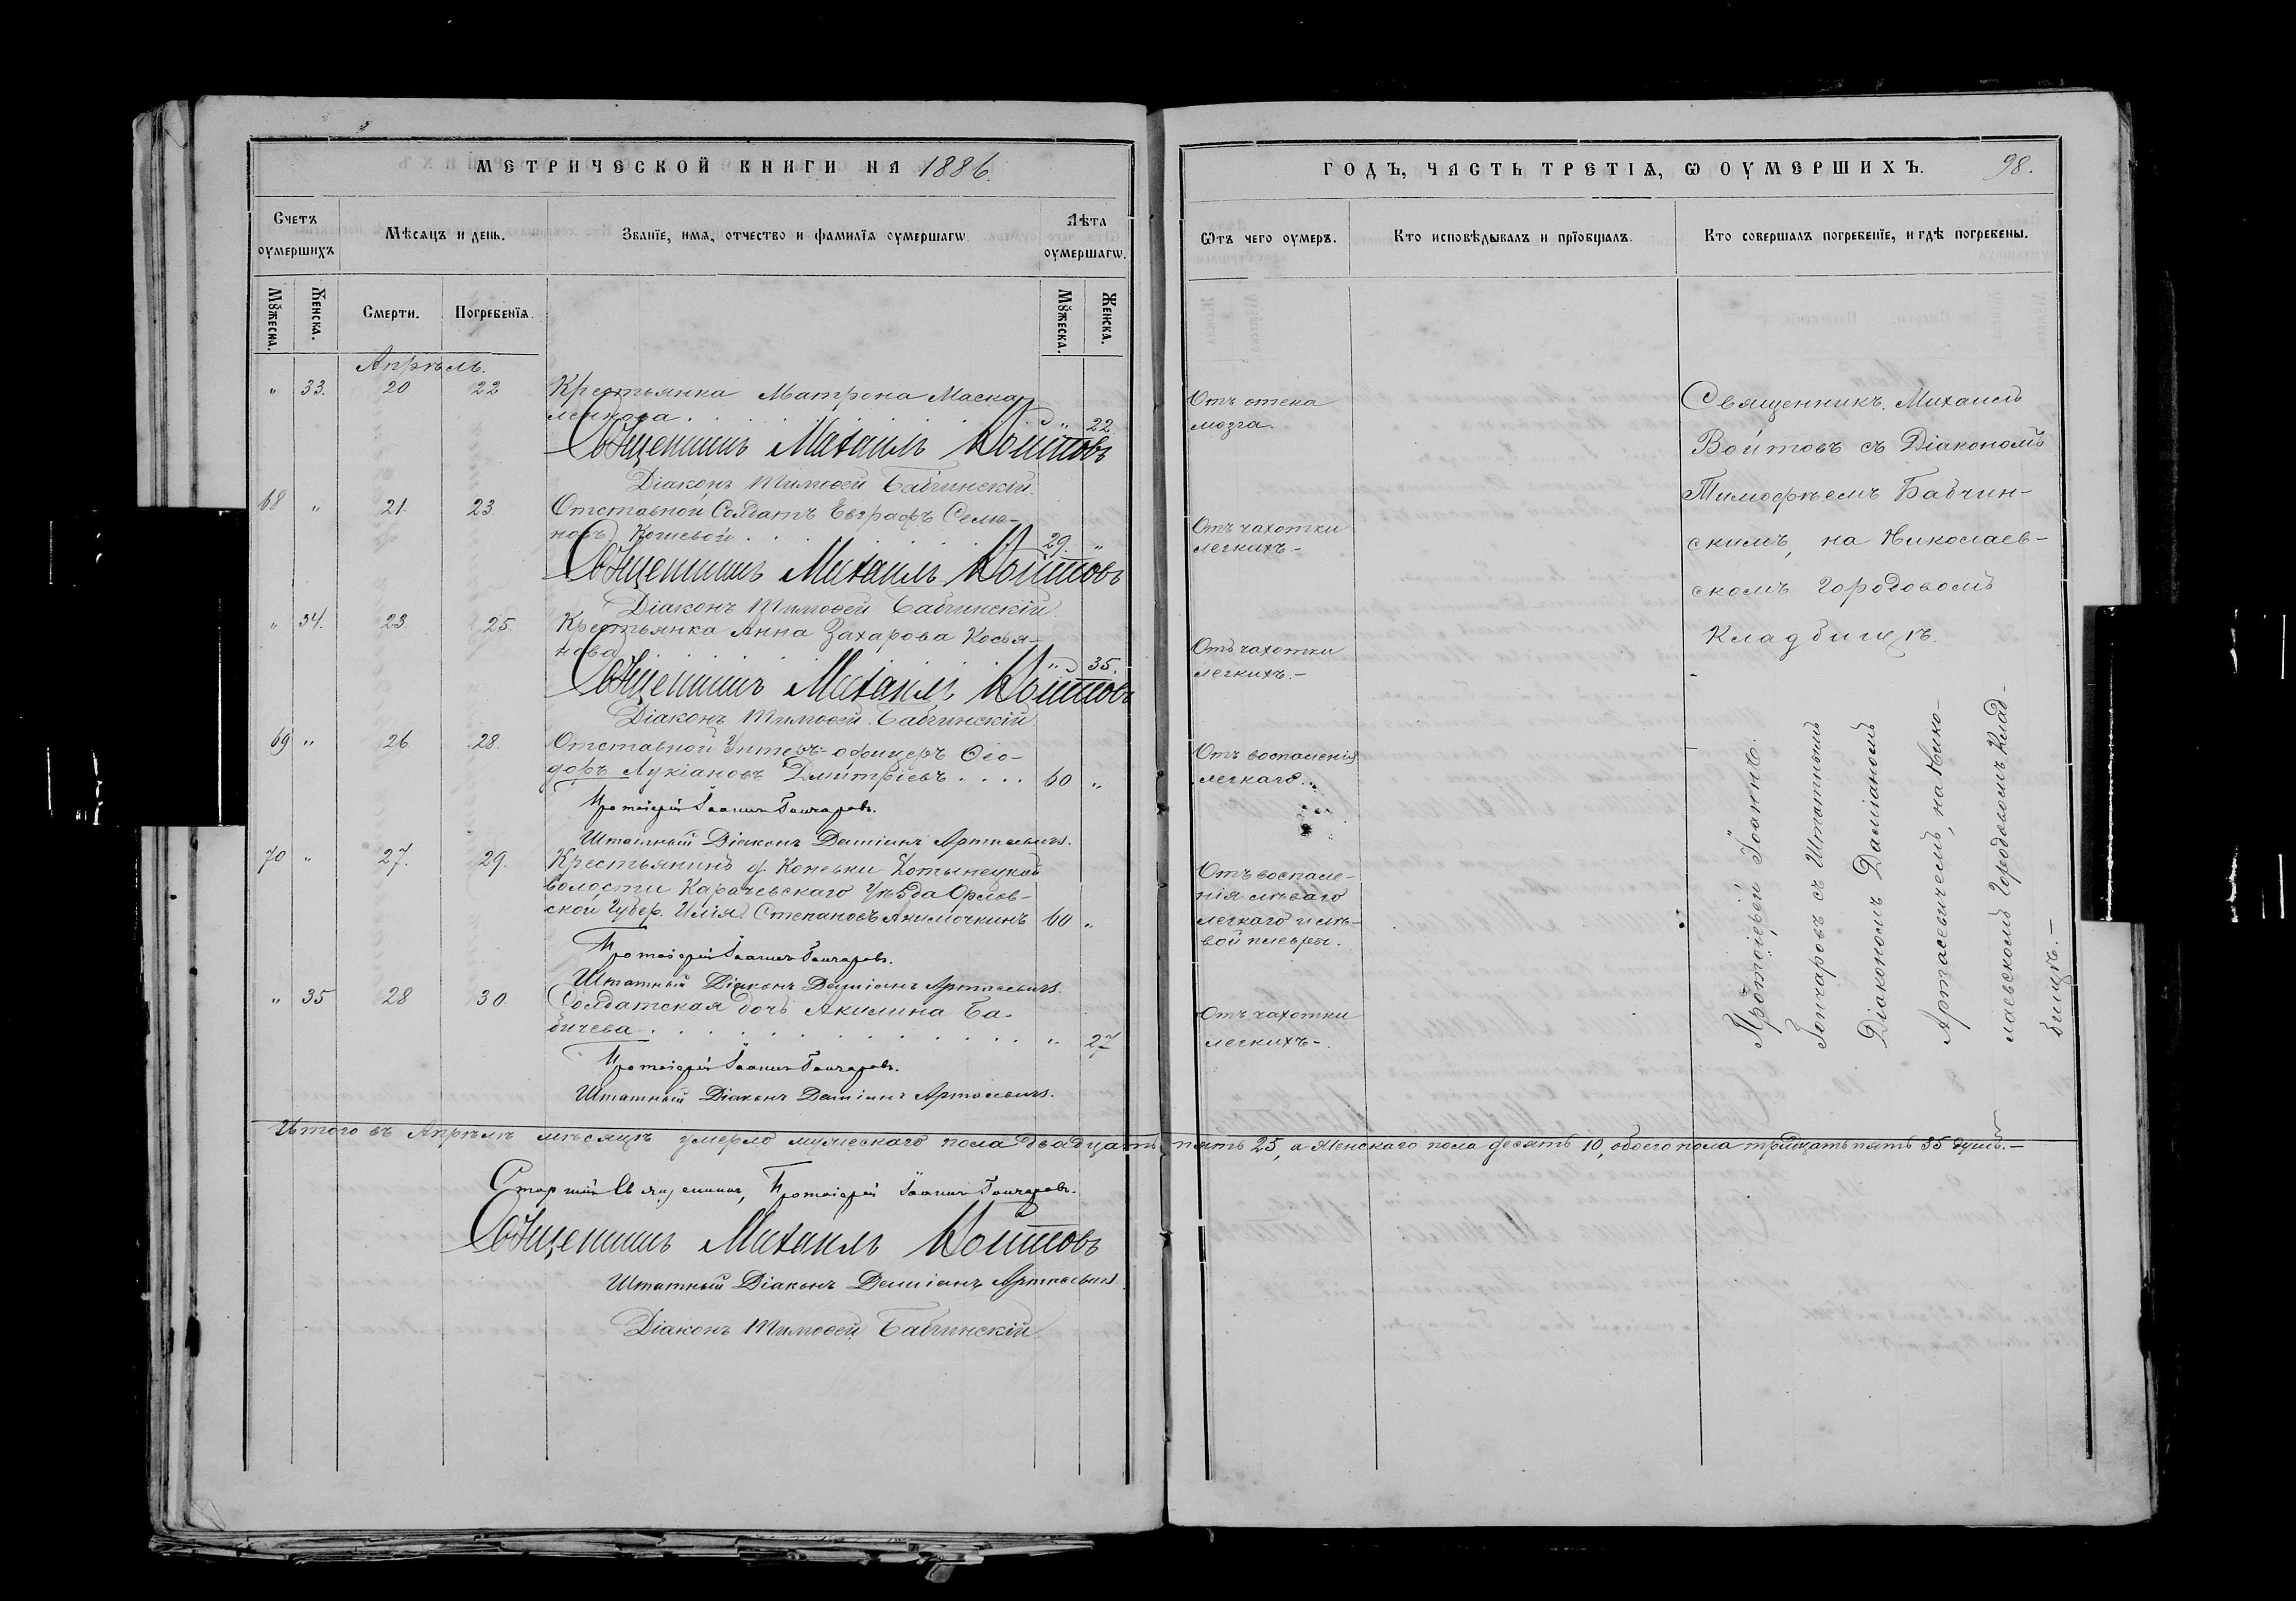 МЕТРИЧЕСКОЙ КНИГИ НА 1886.
Счетъ оумершихъ
Мѣсяцъ и день.
Званїе, имѧ, отчество и фамилїѧ оумершагѡ.
Лѣта оумершагѡ.
Мꙋжеска.
Женска.
Смерти.
Погребенїѧ.
Мꙋжеска.
Женска.
Апрѣль.
" 33. 20 22 Крестьянка Матрона Маска-
ленкова . . . . . " 22.
Священникъ Михаилъ Войтовъ
Діаконъ Тимоѳей Бабчинскій.
68 " 21. 23. Отставной Солдатъ Евграфъ Семе-
новъ Кошевой . . . . 29. "
Священникъ Михаилъ Войтовъ
Діаконъ Тимоѳей Бабчинскій
" 34. 23. 25. Крестьянка Анна Захарова Косья-
нова . . . . . " 35.
Священникъ Михаилъ Войтовъ
Діаконъ Тимоѳей Бабчинскій
69 " 26 28. Отставной Унтеръ-офицеръ Ѳео-
доръ Лукіановъ Дмитріевъ . . . . 60 "
Протоіерей Іоаннъ Гончаровъ.
Штатный Діаконъ Даміанъ Артасевичъ.
70 " 27. 29. Крестьянинъ д. Коневки Хотынецкой
волости Карачевскаго Уѣзда Орлов-
ской Губер. Илія Степановъ Акимочкинъ 60 "
Протоіерей Іоаннъ Гончаровъ.
Штатный Діаконъ Даміанъ Артасевичъ.
" 35 28 30. Солдатская дочь Акилина Ба-
бичева . . . . . . . . . . . " 27
Протоіерей Іоаннъ Гончаровъ.
Штатный Діаконъ Даміанъ Артасевичъ.
Итого въ Апрѣлѣ мѣсяцѣ умерло мужескаго пола двадцать пять 25, а Женскаго пола десять 10, обоего пола тридцать пять 35 душъ.—
Старшій Священникъ, Протоіерей Іоаннъ Гончаровъ.
Священникъ Михаилъ Войтовъ
Штатный Діаконъ Даміанъ Артасевичъ
Діаконъ Тимоѳей Бабчинскій
ГОДЪ, ЧАСТЬ ТРЕТІѦ, Ѡ ОУМЕРШИХЪ. 98.
Ѿтъ чего оумеръ.
Кто исповѣдывалъ и прїобщалъ.
Кто совершалъ погребенїе, и гдѣ погребены.
Отъ отека
мозга.
Отъ чахотки
легкихъ.—
Отъ чахотки
легкихъ.—
Отъ воспаленія
легкаго.
Отъ воспале-
нія лѣваго
легкаго и лѣ-
вой плевры.
Отъ чахотки
легкихъ—.
Священникъ Михаилъ
Войтовъ съ Діакономъ
Тимофѣемъ Бабчин-
скимъ, на Николаев-
скомъ Городовомъ
Кладбищѣ.
Протоіерей Іоаннъ
Гончаровъ съ Штатнымъ
Діакономъ Даміаномъ
Артасевичемъ, на Нико-
лаевскомъ Городовомъ Клад-
бищѣ.—